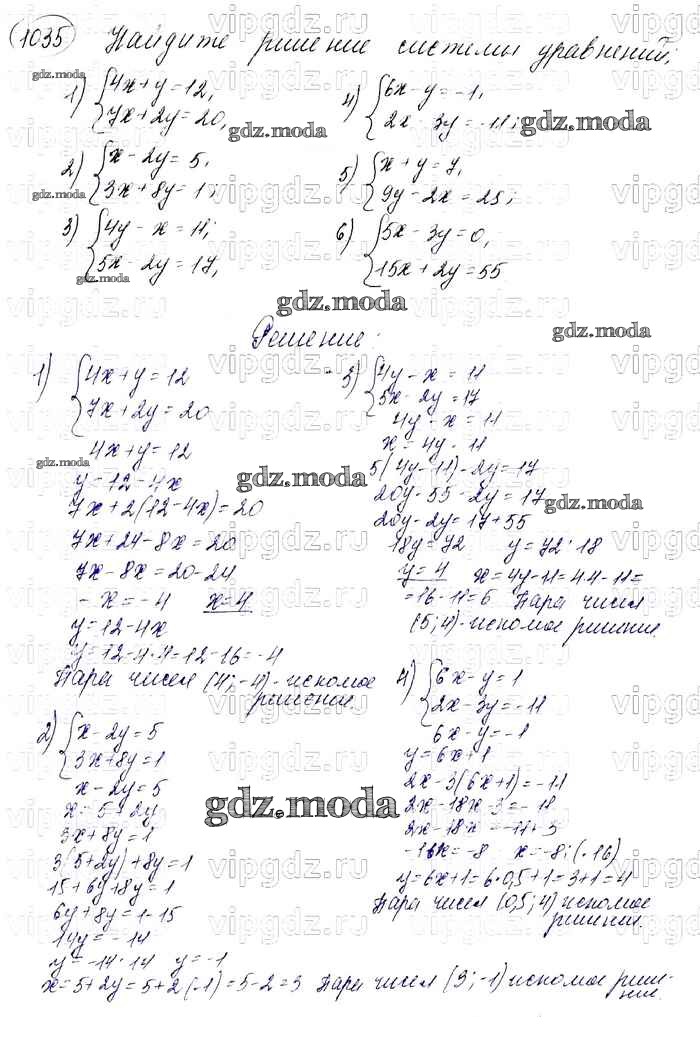 1035 Найдите решение системы уравнений;
1) {4x+y=12,
7x+2y=20,
2) {x-2y=5,
3x+8y=1;
3) {4y-x=11;
5x-2y=17,
4) {6x-y=-1,
2x-3y=-11;
5) {x+y=7,
9y-2x=25;
6) {5x-3y=0,
15x+2y=55
Решение:
1) {4x+y=12
7x+2y=20
4x+y=12
y=12-4x
7x+2(12-4x)=20
7x+24-8x=20
7x-8x=20-24
-x=-4 x=4
y=12-4x
y=12-4·4=12-16=-4
Пара чисел (4;-4)-искомое
решение.
2) {x-2y=5
3x+8y=1
x-2y=5
x=5+2y
3x+8y=1
3(5+2y)+8y=1
15+6y+8y=1
6y+8y=1-15
14y=-14
y=-14:14 y=-1
x=5+2y=5+2(-1)=5-2=3 Пара чисел (3;-1) искомое реше-
ние.
3) {4y-x=11
5x-2y=17
4y-x=11
x=4y-11
5(4y-11)-2y=17
20y-55-2y=17
20y-2y=17+55
18y=72 y=72:18
y=4 x=4y-11=4·4-11=
=16-11=6 Пара чисел
(5;4)-искомое решение.
4) {6x-y=1
2x-3y=-11
6x-y=-1
y=6x+1
2x-3(6x+1)=-11
2x-18x-3=-18
2x-18x=-11+3
-16x=-8 x=-8:(-16)
y=6x+1=6·0,5+1=3+1=4
Пара чисел (0,5;4) искомое
решение.
gdz.moda
vipgdz.ru